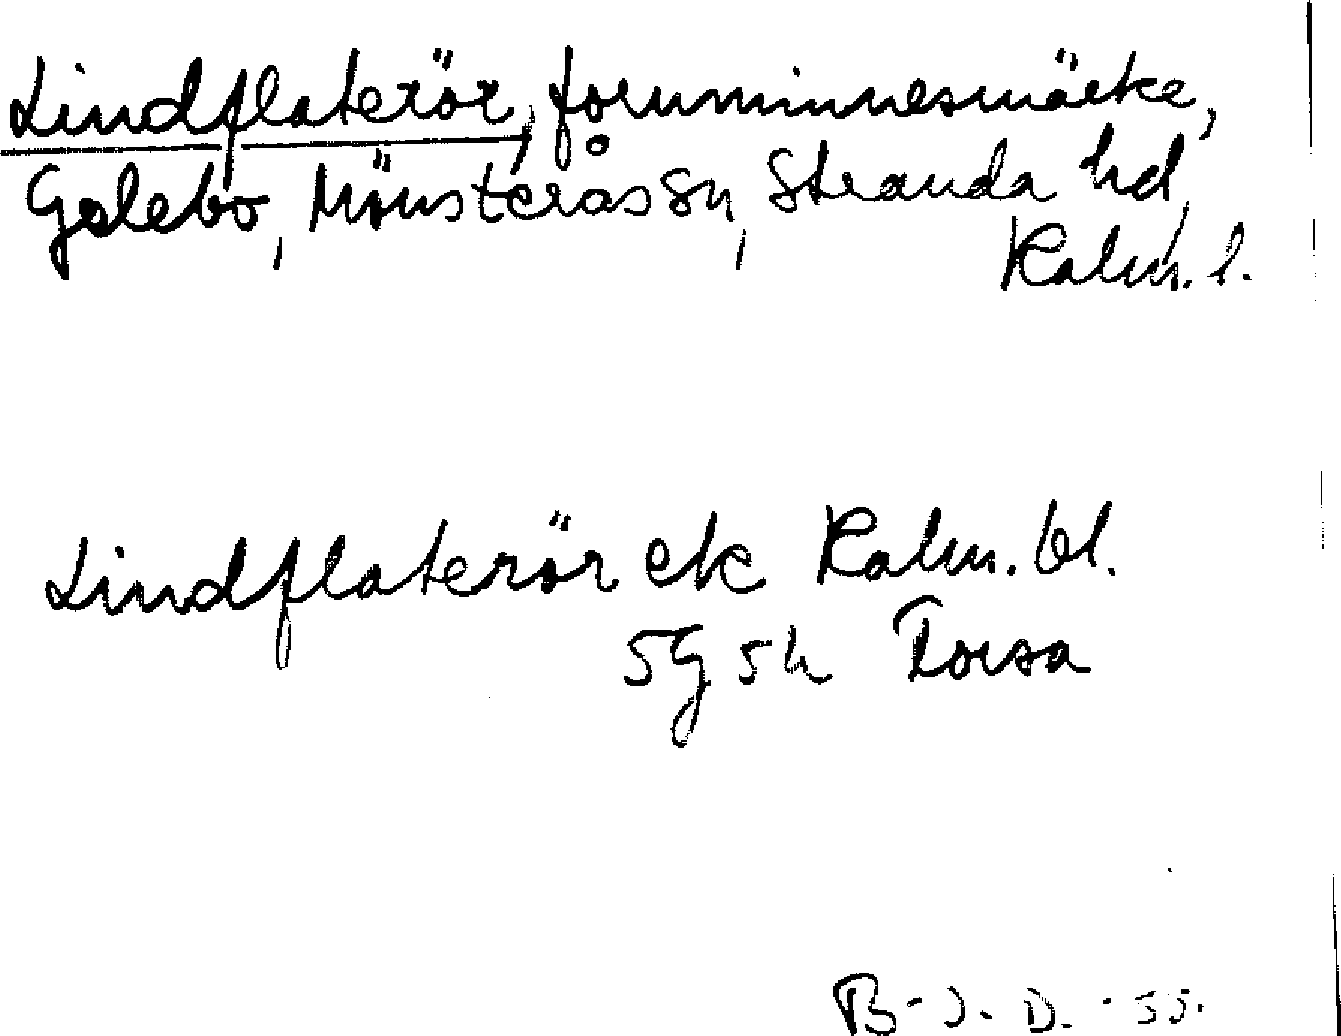 Lindflaterör, fornminnesmärke,
Gelebo, Mönsterås sn, Stranda hd,
Kalm. l.
Lindflaterör ek Kalm. bl.
5G 5h Torsa
B-J. D. - 55.